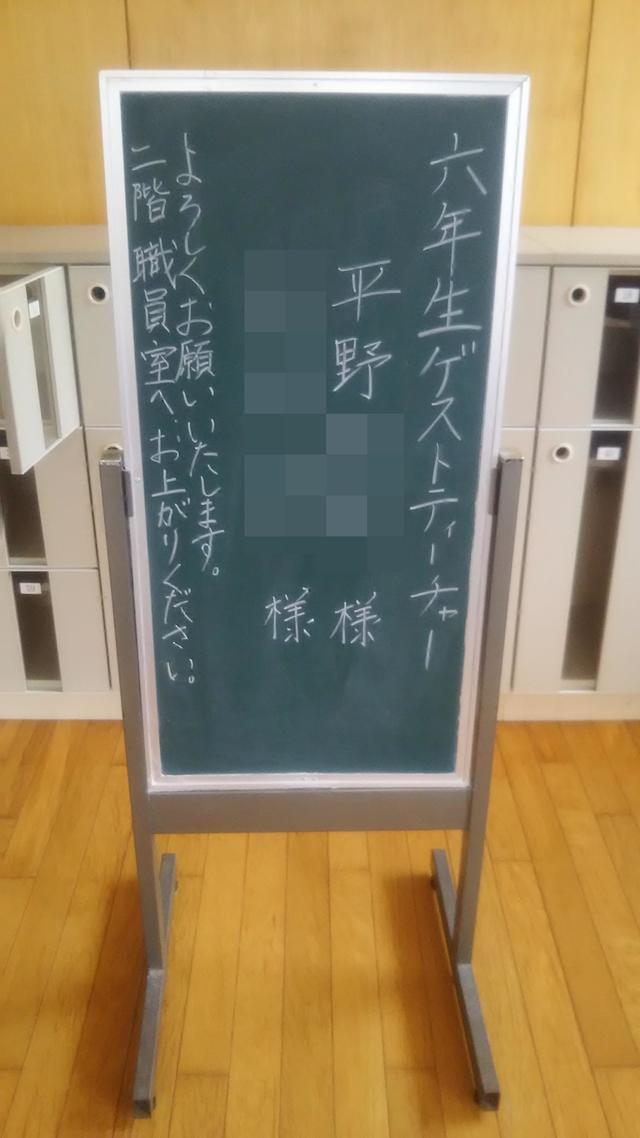 六年生ゲストティーチャー
平野 様
様
よろしくお願いいたします。
二階職員室へお上がりください。